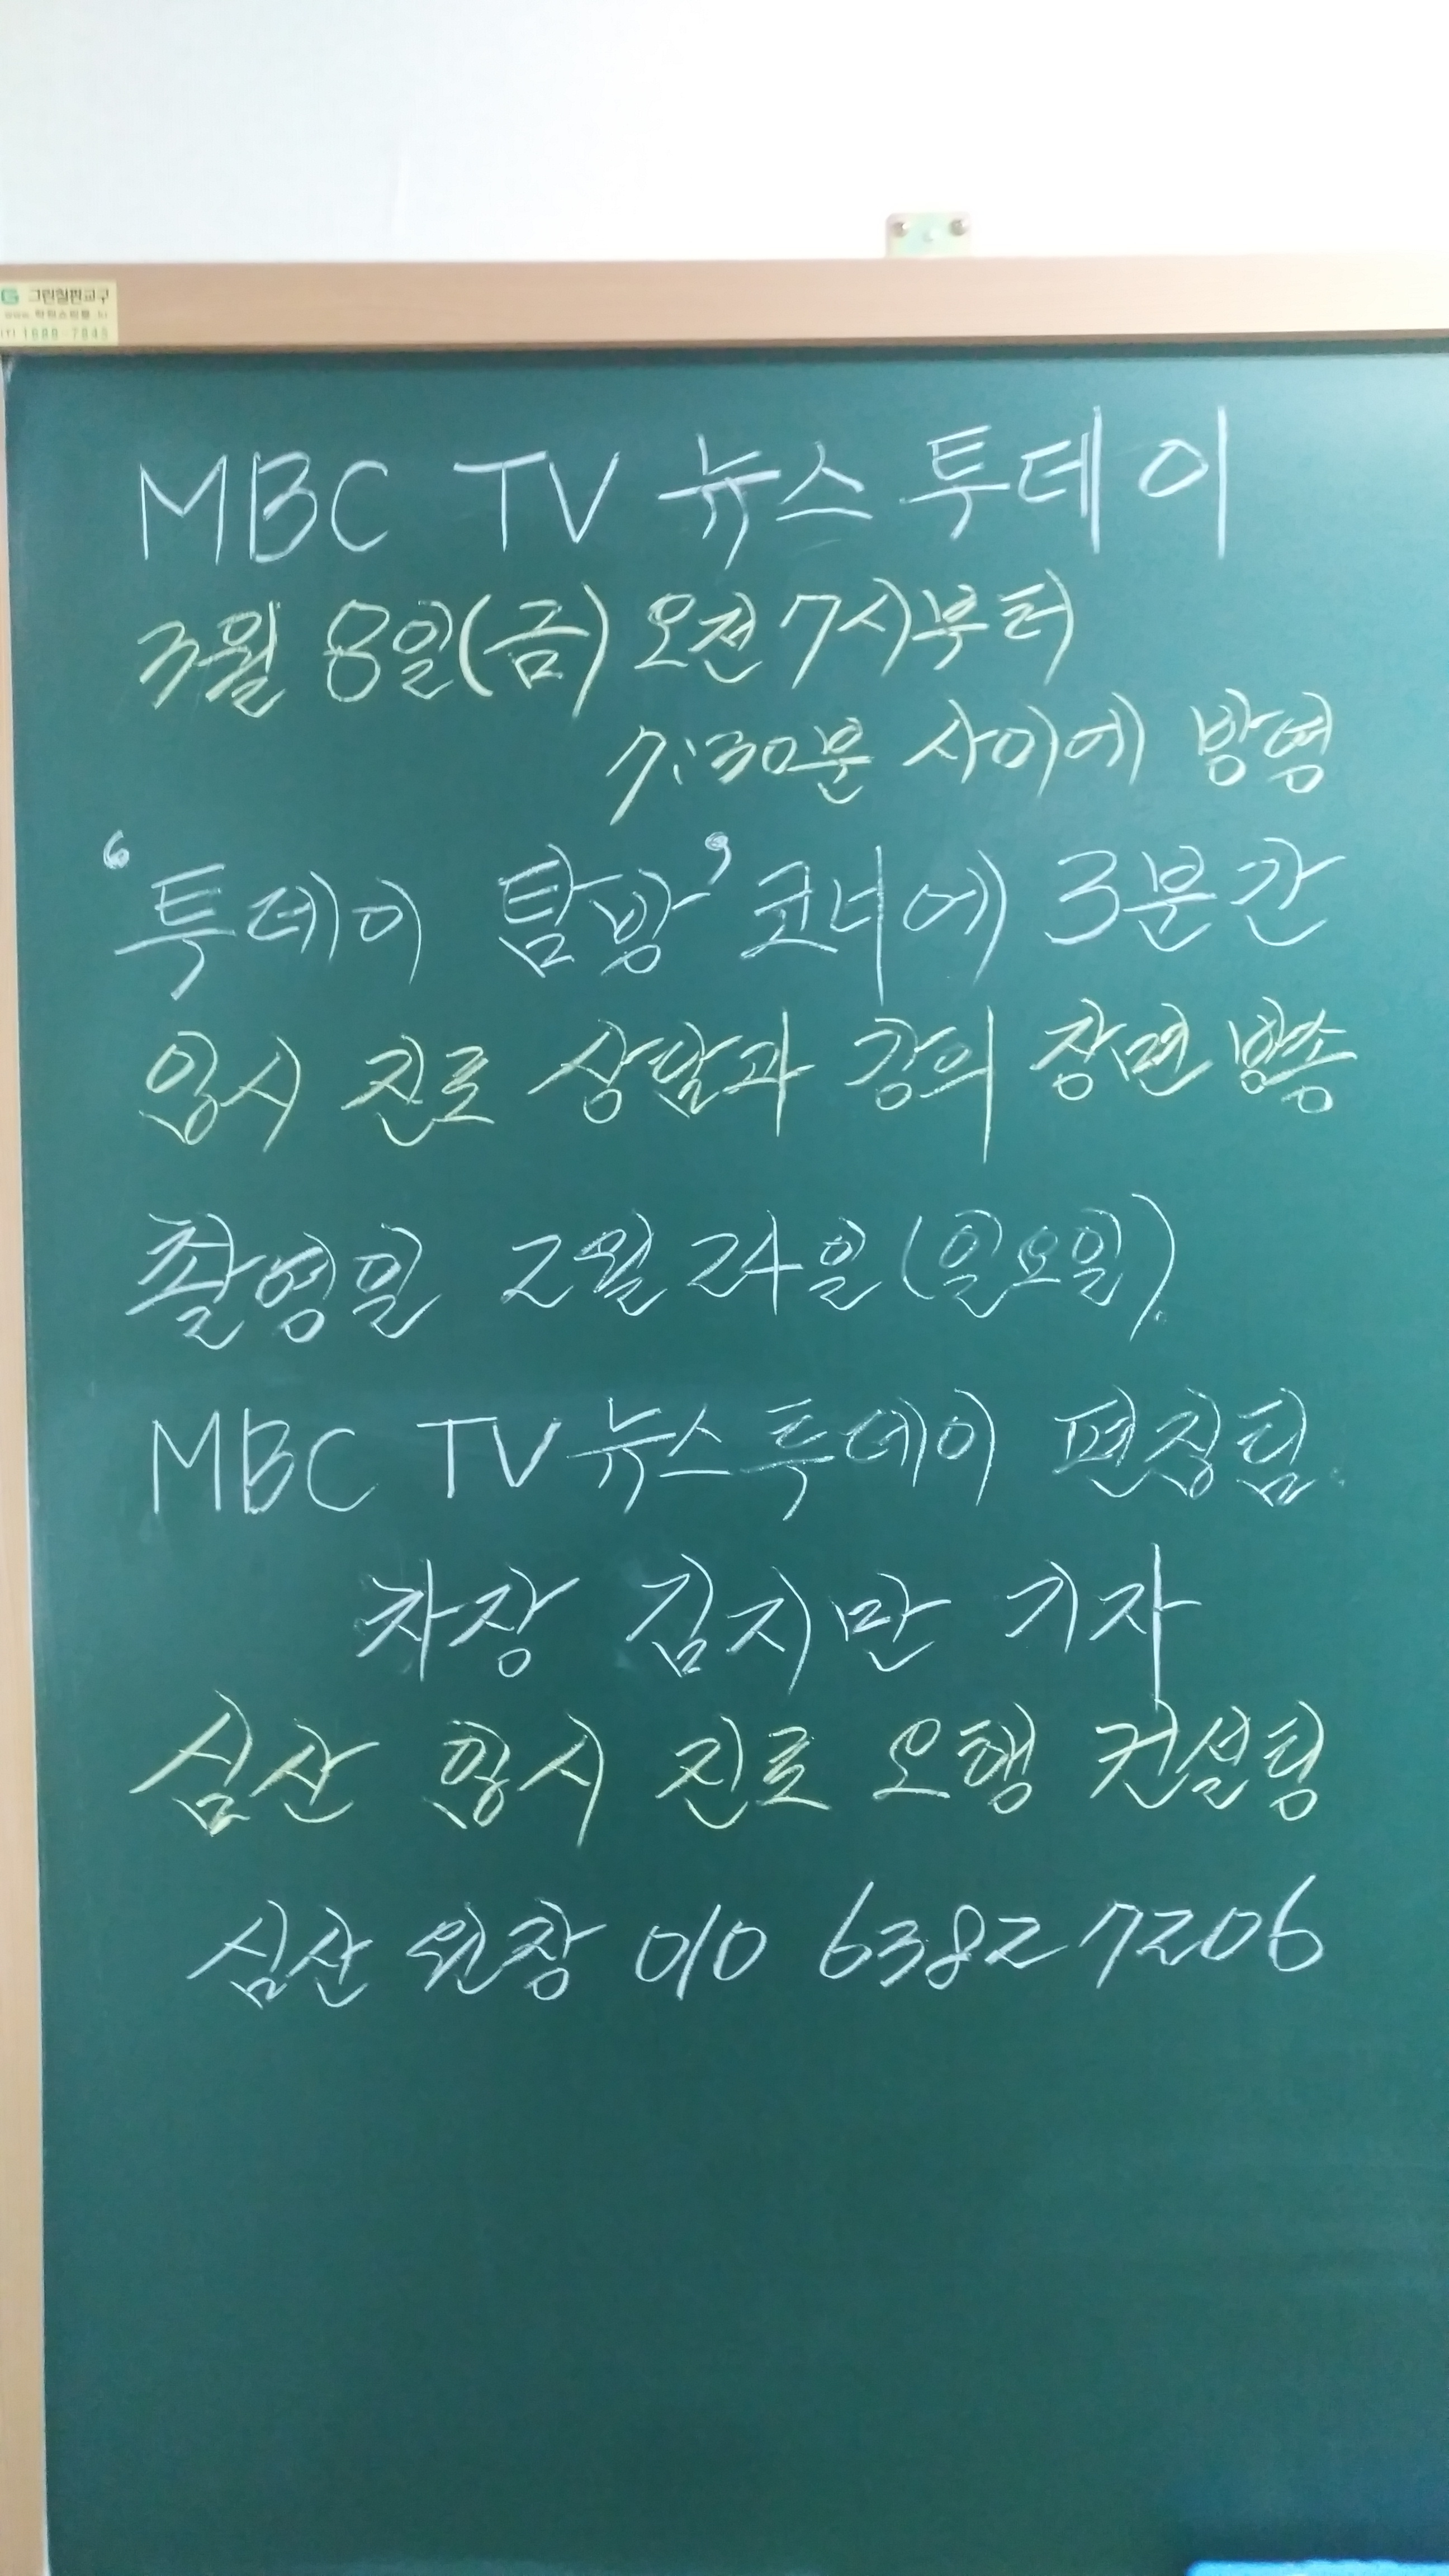 그린칠판교구
1688-7845
MBC TV 뉴스투데이
3월 8일(금) 오전 7시부터
7:30분 사이에 방영
'투데이 탐방' 코너에 3분간
입시 진로 상담과 강의 장면 방송
촬영일 2월 24일(일요일).
MBC TV 뉴스투데이 편집팀.
차장 김지만 기자
심산 입시 진로 오행 컨설팅
심산 원장 010 6382 7206